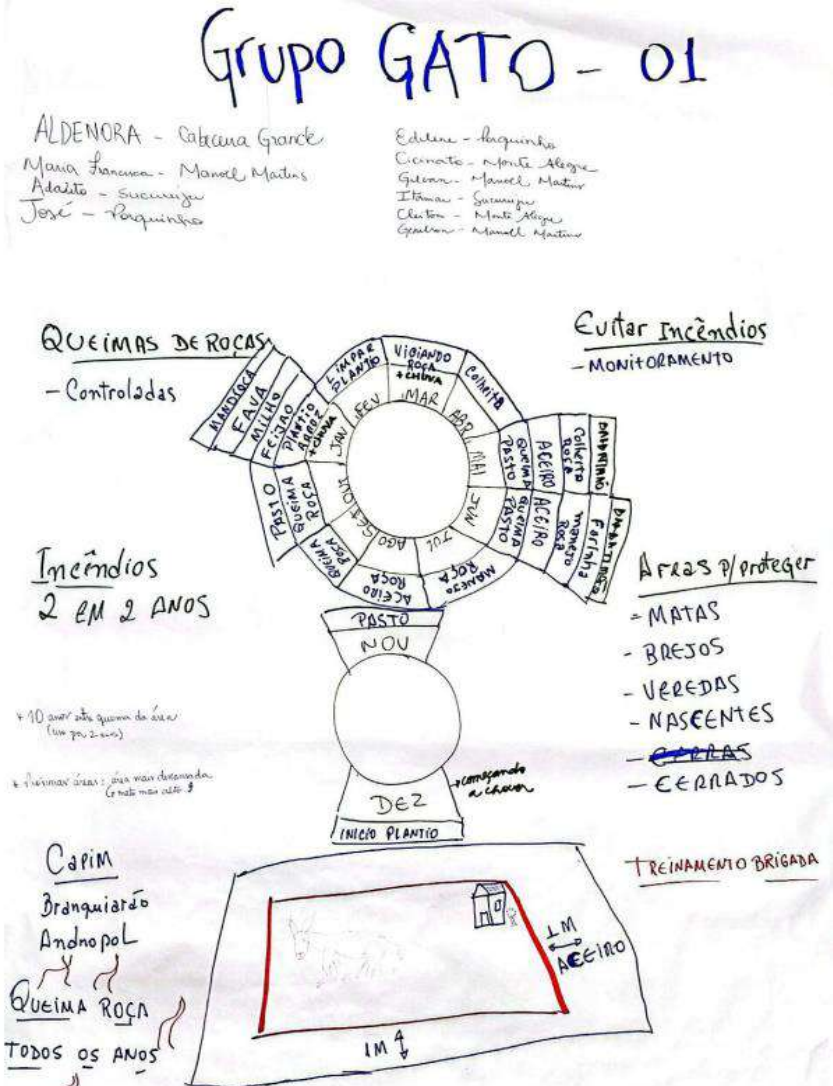 Grupo GATO - 01
ALDENORA - Cabeceira Grande
Maria Francisca - Manoel Martins
Adailto - Sucuruju
José - Porquinho
Edilene - Porquinho
Cicinato - Monte Alegre
Gilvan - Manoel Martins
Itamar - Sucuruju
Cleiton - Monte Alegre
Manoel Martins
QUEIMAS DE ROÇAS
- Controladas
Evitar Incêndios
- MONITORAMENTO
MANDIOCA
FAVA
MILHO
FEIJÃO
PLANTIO
ARROZ
+ CHUVA
JAN
LIMPAR
PLANTIO
FEV
VIGIANDO
ROÇA
+ CHUVA
MAR
Colheita
ABRI
MAI
QUEIMA
PASTO
ACEIRO
Colheita
ROÇA
JUN
QUEIMA
PASTO
ACEIRO
manejo
Roça
Farinha
JUL
MANEJO
ROÇA
AGO
ACEIRO
ROÇA
SET
QUEIMA
ROÇA
OUT
QUEIMA
ROÇA
PASTO
PASTO
NOV
DEZ
INICIO PLANTIO
começando
a chover
Incêndios
2 EM 2 ANOS
+ 10 anos entre queima da área
(uso por 2 anos)
+ Próximas áreas: área mais descansada
mato mais alto
Areas p/proteger
- MATAS
- BREJOS
- VEREDAS
- NASCENTES
- CERRADOS
TREINAMENTO BRIGADA
Capim
Branquiarão
AndropoL
QUEIMA ROÇA
TODOS OS ANOS
1M
ACEIRO
1M